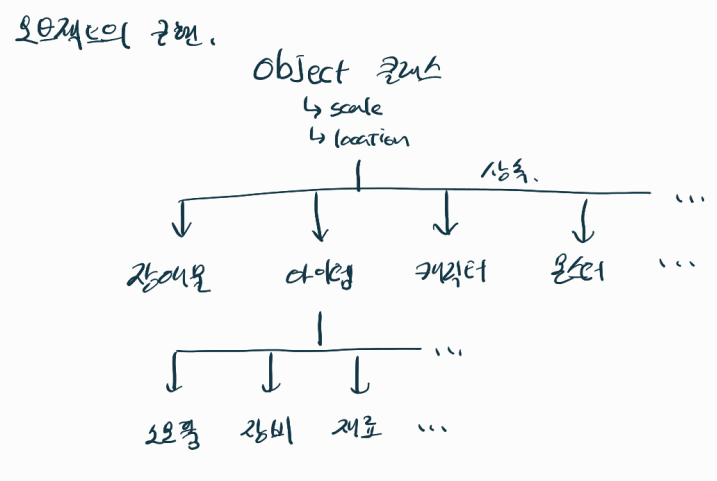 오브젝트의 구현.
Object 클래스
↳ scale
↳ location
상속.
...
장애물 아이템 캐릭터 몬스터 ...
...
소모품 장비 재료 ...